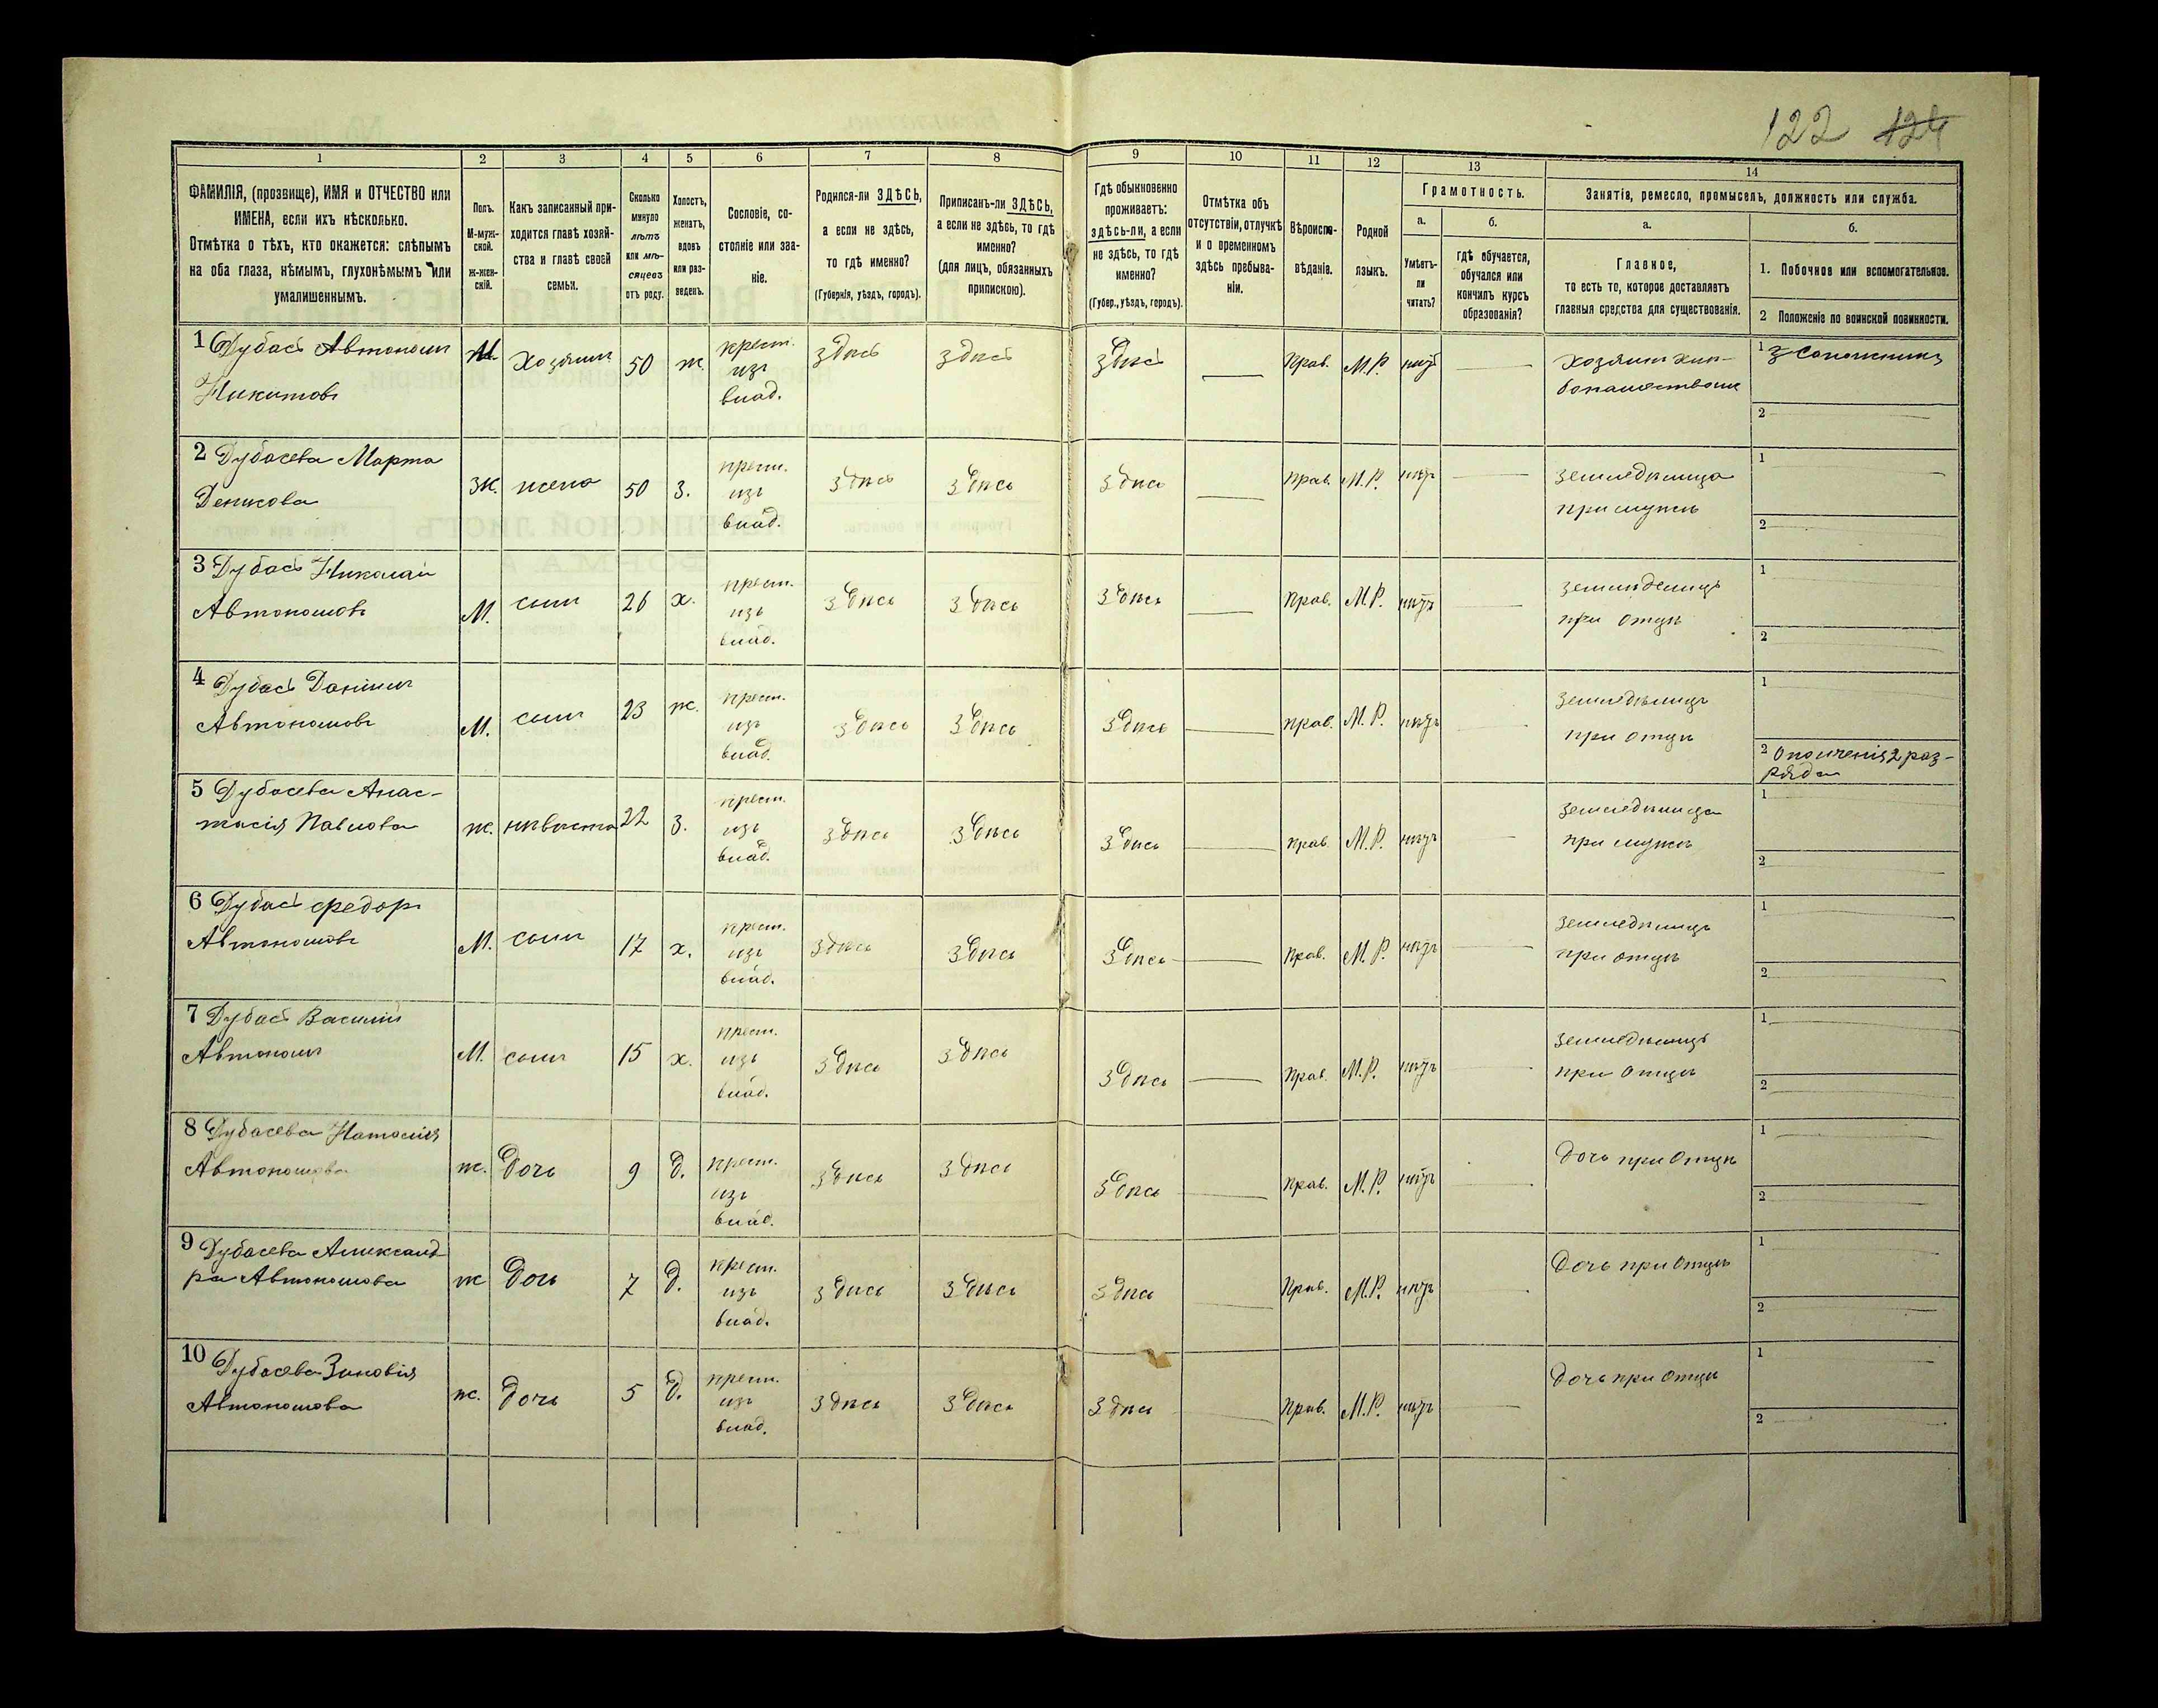 122 124
1 2 3 4 5 6 7 8 9 10 11 12 13 14
ФАМИЛІЯ, (прозвище), ИМЯ и ОТЧЕСТВО или
ИМЕНА, если ихъ нѣсколько.
Отмѣтка о тѣхъ, кто окажется: слѣпымъ
на оба глаза, нѣмымъ, глухонѣмымъ или
умалишеннымъ.
Полъ.
М-муж-
ской.
Ж-жен-
скій.
Какъ записанный при-
ходится главѣ хозяй-
ства и главѣ своей
семьи.
Сколько
минуло
лѣтъ
или мѣ-
сяцевъ
отъ роду.
Холостъ,
женатъ,
вдовъ
или раз-
веденъ.
Сословіе, со-
стояніе или зва-
ніе.
Родился-ли ЗДѢСЬ,
а если не здѣсь,
то гдѣ именно?
(Губернія, уѣздъ, городъ).
Приписанъ-ли ЗДѢСЬ,
а если не здѣсь, то гдѣ
именно?
(для лицъ, обязанныхъ
припискою).
Гдѣ обыкновенно
проживаетъ:
здѣсь-ли, а если
не здѣсь, то гдѣ
именно?
(Губер., уѣздъ, городъ).
Отмѣтка объ
отсутствіи, отлучкѣ
и о временномъ
здѣсь пребыва-
ніи.
Вѣроиспо-
вѣданіе.
Родной
языкъ.
Грамотность.
а.
Умѣетъ-
ли
читать?
б.
гдѣ обучается,
обучался или
кончилъ курсъ
образованія?
Занятія, ремесло, промыселъ, должность или служба.
а.
Главное,
то есть то, которое доставляетъ
главныя средства для существованія.
б.
1. Побочное или вспомогательное.
2 Положеніе по воинской повинности.
1 Дубасъ Автономъ
Никитовъ
М. хозяинъ 50 ж. крест. изъ влад. здѣсь здѣсь здѣсь — Прав. М.Р. нѣтъ —
1 Сапожникъ
2
2 Дубасева Марта
Денисова
ж. жена 50 з. крест. изъ влад. здѣсь здѣсь здѣсь — Прав. М.Р. нѣтъ —
земледѣлица
при мужѣ
1
2
3 Дубасъ Николай
Автономовъ
М. сынъ 26 х. крест. изъ влад. здѣсь здѣсь здѣсь — Прав. М.Р. нѣтъ —
земледѣлецъ
при отцѣ
1
2
4 Дубасъ Даніилъ
Автономовъ
М. сынъ 23 ж. крест. изъ влад. здѣсь здѣсь здѣсь — прав. М.Р. нѣтъ —
земледѣлецъ
при отцѣ
1
2 Ополченія 2 раз-
ряда
5 Дубасева Анас-
тасія Павлова
ж. невѣста 22 з. крест. изъ влад. здѣсь здѣсь здѣсь — прав. М.Р. нѣтъ —
земледѣлица
при мужѣ
1
2
6 Дубасъ Федоръ
Автономовъ
М. сынъ 17 х. крест. изъ влад. здѣсь здѣсь здѣсь — Прав. М.Р. нѣтъ —
земледѣлецъ
при отцѣ
1
2
7 Дубасъ Василій
Автономъ
М. сынъ 15 х. крест. изъ влад. здѣсь здѣсь здѣсь — Прав. М.Р. нѣтъ —
земледѣлецъ
при отцѣ
1
2
8 Дубасева Наталія
Автономова
ж. Дочь 9 Д. крест. изъ влад. здѣсь здѣсь здѣсь — Прав. М.Р. нѣтъ —
Дочь при отцѣ
1
2
9 Дубасева Александ-
ра Автономова
ж Дочь 7 Д. крест. изъ влад. здѣсь здѣсь здѣсь — Прав. М.Р. нѣтъ —
Дочь при отцѣ
1
2
10 Дубасева Зиновія
Автономова
ж. Дочь 5 Д. крест. изъ влад. здѣсь здѣсь здѣсь — Прав. М.Р. нѣтъ —
Дочь при отцѣ
1
2